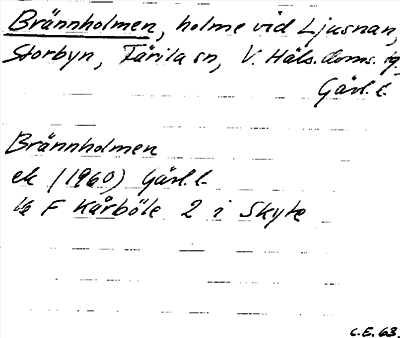 Brännholmen, holme vid Ljusnan,
Storbyn, Färila sn, V. Häls. doms.
Gävl. l.
Brännholmen
ek (1960) Gävl. l.
F Kårböle 2 i Skyte
C.E. 63.